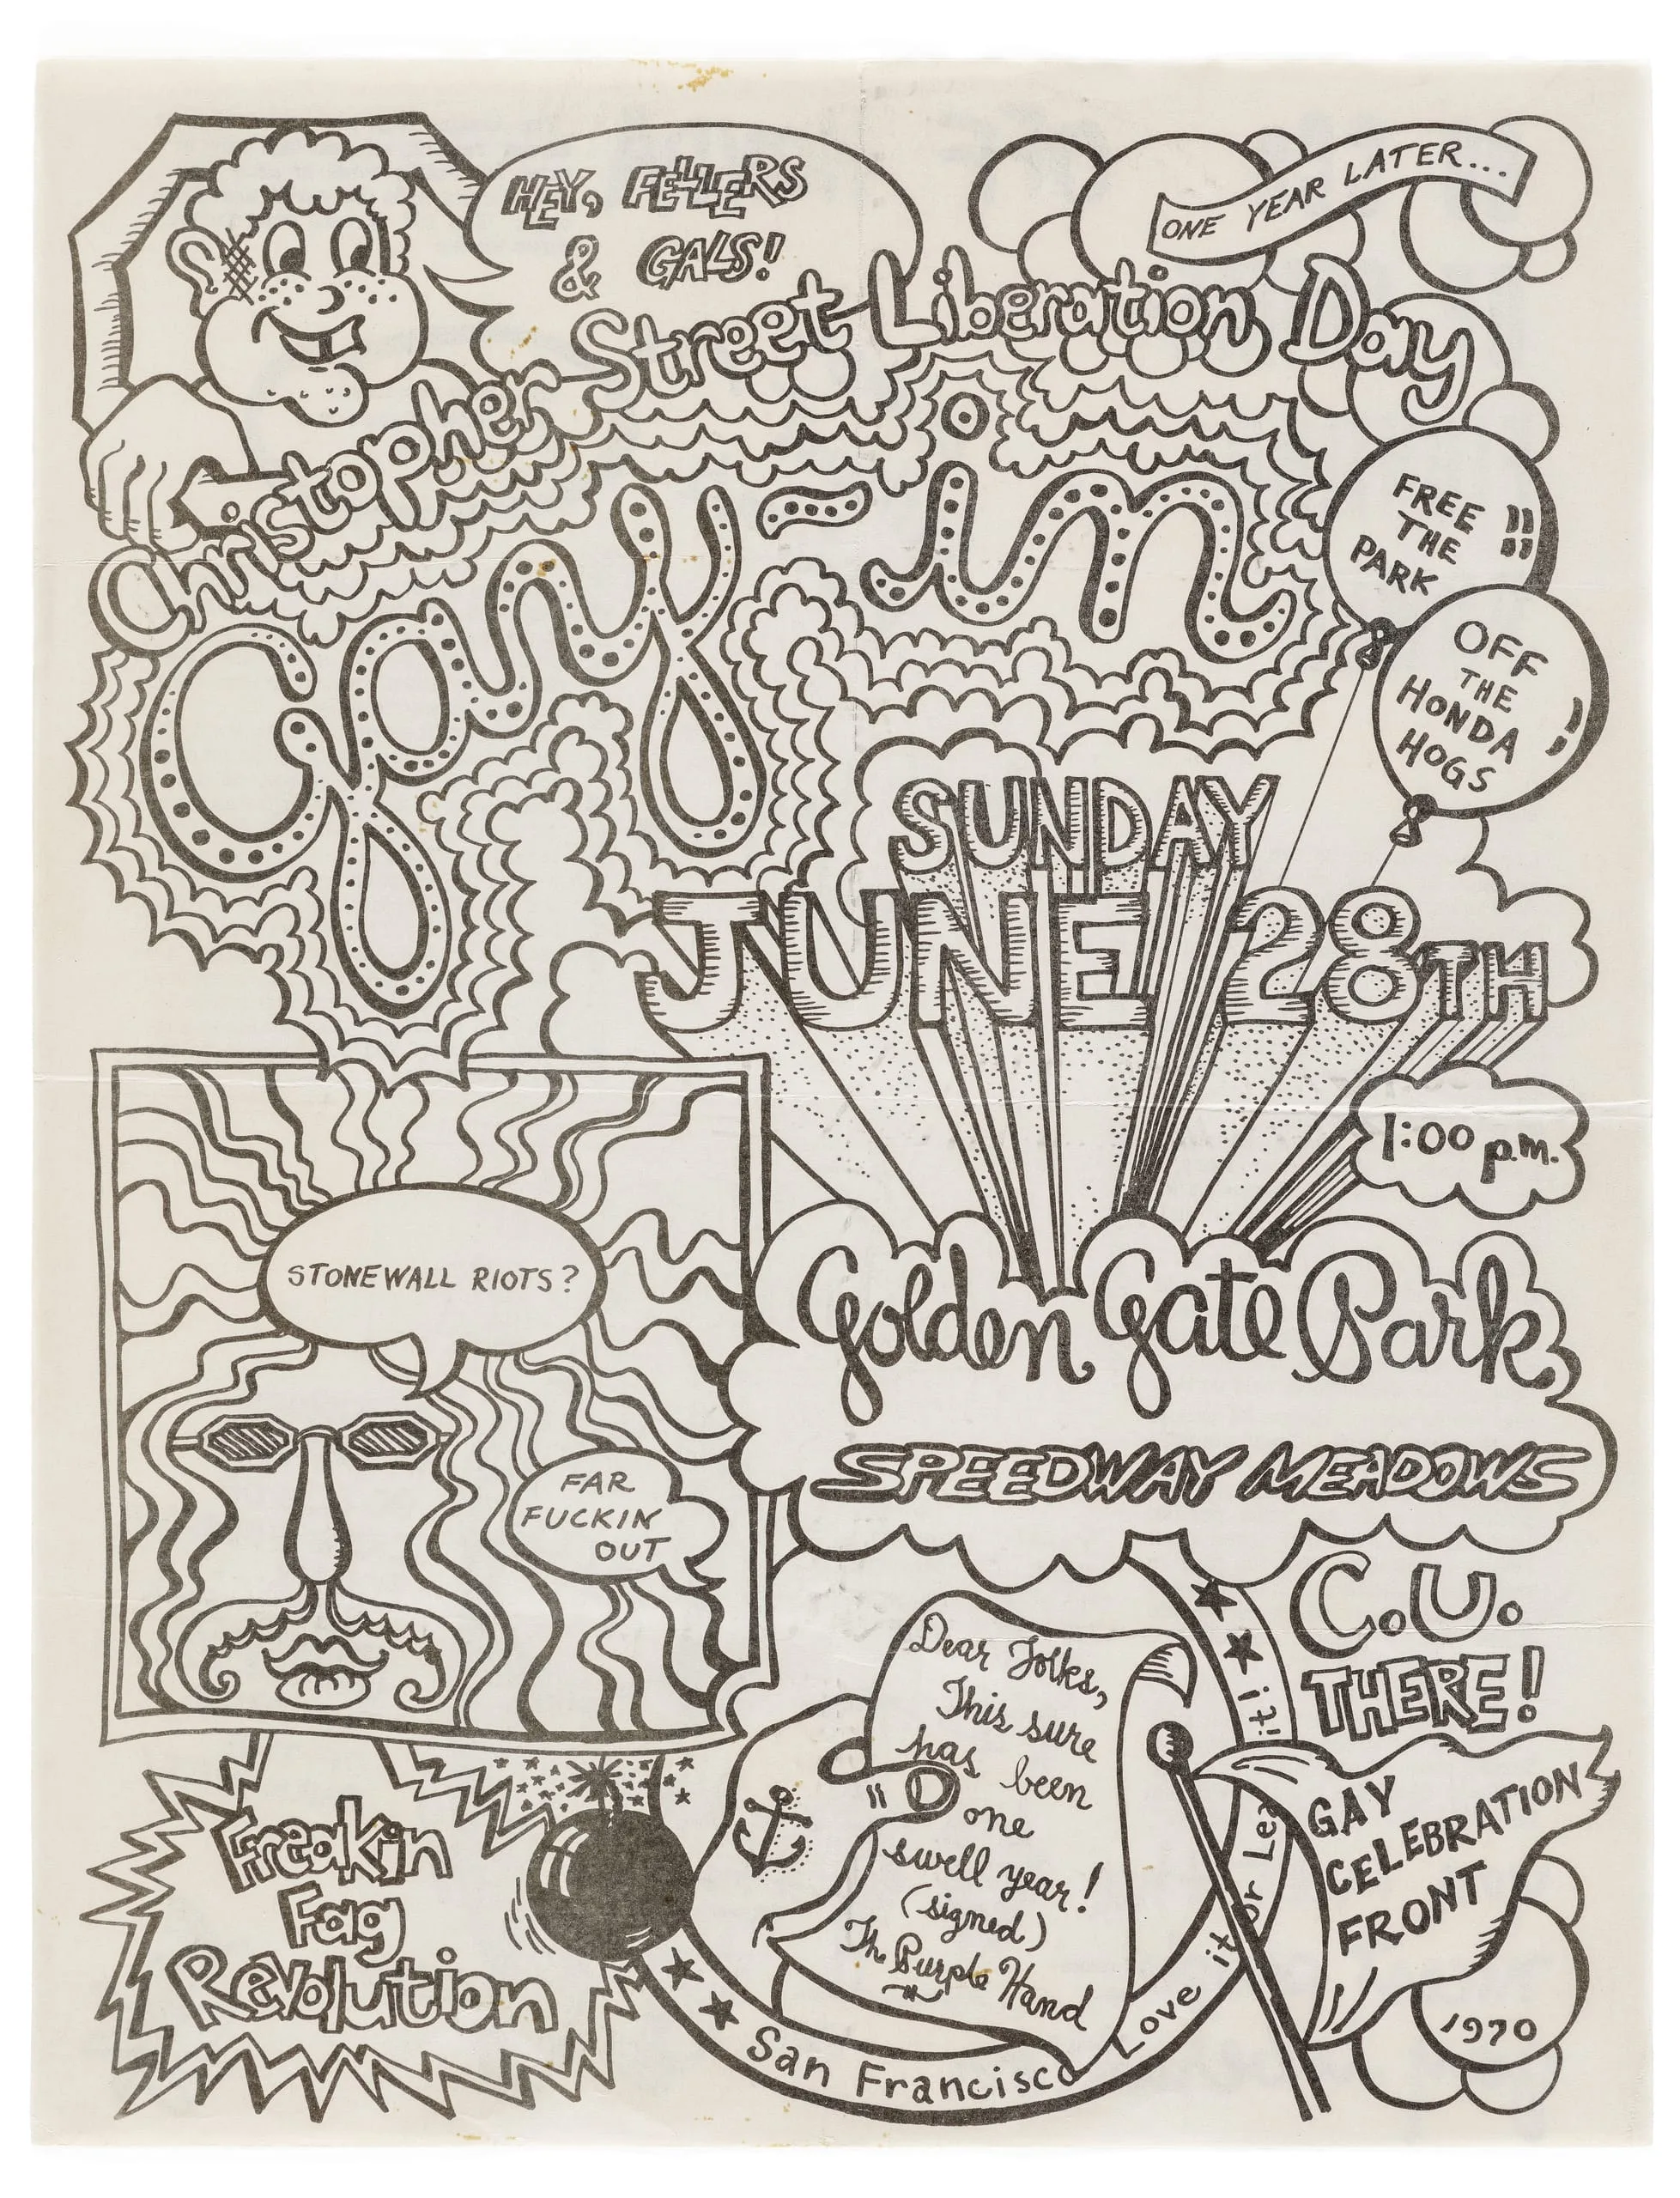 HEY, FELLERS
& GALS!
ONE YEAR LATER...
Christopher Street Liberation Day
Gay-in
FREE
THE
PARK
!!
OFF
THE
HONDA
HOGS
SUNDAY
JUNE 28TH
1:00 p.m.
Golden Gate Park,
SPEEDWAY MEADOWS
STONEWALL RIOTS?
FAR
FUCKIN
OUT
C.U.
THERE!
Dear Folks,
This sure
has been
one
swell year!
(signed)
The Purple Hand
Freakin
Fag
Revolution
San Francisco
Love it or Lea
it!
GAY
CELEBRATION
FRONT
1970